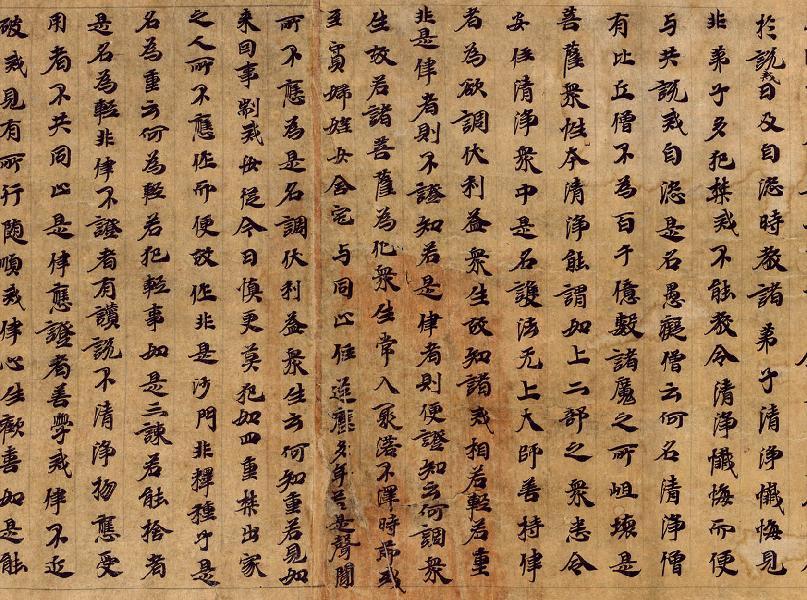 於説戒日及自恣時教諸弟子清淨懺悔見
非弟子多犯禁戒不能教令清淨懺悔而便
与共説戒自恣是名愚癡僧云何名清淨僧
有比丘僧不為百千億數諸魔之所岨壞是
菩薩衆性本清淨能謂如上二部之衆悉令
安住清淨衆中是名護法无上大師善持律
者為欲調伏利益衆生故知諸戒相若輕若重
非是律者則不證知若是律者則便證知云何調衆
生故若諸菩薩為化衆生常入聚落不擇時節或
至寡婦婬女舍宅与同止住逕歷多年若是聲聞
所不應為是名調伏利益衆生云何知重若見如
來因事制戒汝從今日慎更莫犯如四重禁出家
之人所不應作而便故作非是沙門非釋種子是
名為重云何為輕若犯輕事如是三諫若能捨者
是名為輕非律不證者有讚説不清淨物應受
用者不共同止是律應證者善學戒律不近
破戒見有所行隨順戒律心生歡喜如是能